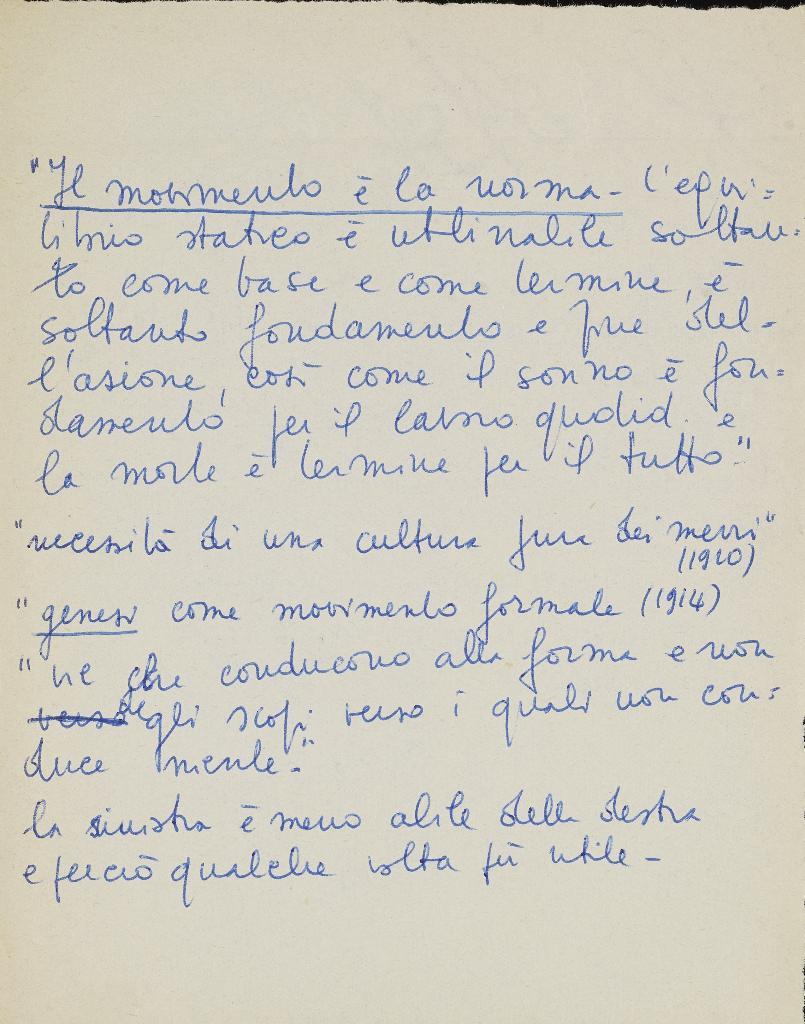 "Il movimento è la norma - l'equi=
librio statico è utilizzabile soltan=
to come base e come termine, è
soltanto fondamento e fine del-
l'azione, così come il sonno è fon=
damento per il lavoro quotid. e
la morte è termine per il tutto."
"necessità di una cultura pura dei mezzi"
(1920)
"genesi come movimento formale (1914)
"vie che conducono alla forma e non
verso gli scopi verso i quali non con=
duce niente."
la sinistra è meno abile della destra
e perciò qualche volta più utile -